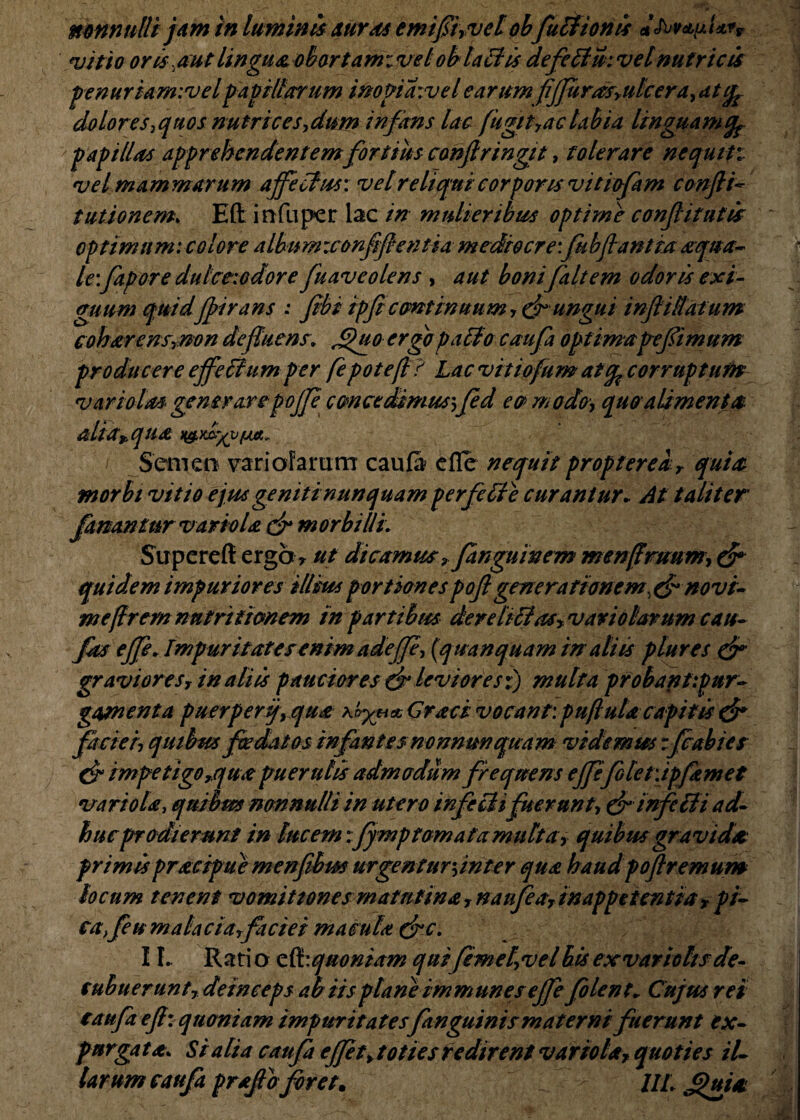 nonnulli jam in luminis auras emißi, vel ob suctionis ἀδυναμίαν
vitio oris, aut linguæ obortam: vel ob lactis defectū: vel nutricis
penuriam: vel papillarum inopiā: vel earum fissuras, ulcera, atq;
dolores, quos nutrices, dum infans lac sugit, ac labia linguamq;
papillas apprehendentem fortius constringit, tolerare nequit:
vel mammarum affectus: vel reliqui corporis vitiosam consti-
tutionem. Est insuper lac in mulieribus optime constitutis
optimum: colore album: consistentia mediocre: substantia æqua-
le: sapore dulce: odore suaveolens, aut boni saltem odoris exi-
guum quid spirans: sibi ipsi continuum, & ungui instillatum
cohærens, non defluens. Quo ergò pacto causa optima peßimum
producere effectum per se potest? Lac vitiosum atq; corruptum
variolas generare posse concedimus; sed eo modo, quo alimenta
alia, quæ κακόχυμα.
Semen variolarum causa esse nequit propterea, quia
morbi vitio ejus geniti nunquam perfecte curantur. At taliter
sanantur variolæ & morbilli.
Superest ergò, ut dicamus, sanguinem menstruum, &
quidem impuriores illius portiones post generationem, & novi-
mestrem nutritionem in partibus derelictas, variolarum cau-
sas esse. Impuritates enim adesse, (quanquam in aliis plures &
graviores, in aliis pauciores & leviores:) multa probant: pur-
gamenta puerperij, quæ λόχια Græci vocant: pustulæ capitis &
faciei, quibus fœdatos infantes nonnunquam videmus: scabies
& impetigo, quæ puerulis admodùm frequens esse solet: ipsæmet
variolæ, quibus nonnulli in utero infecti fuerunt, & infecti ad-
huc prodierunt in lucem: symptomata multa, quibus gravidæ
primis præcipuè mensibus urgentur; inter quæ haud postremum
locum tenent vomitiones matutinæ, nausea, inappetentia, pi-
ca, seu malacia, faciei maculæ &c.
II. Ratio est: quoniam qui semel, vel bis ex variolis de-
cubuerunt, deinceps ab iis planè immunes esse solent. Cujus rei
causa est: quoniam impuritates sanguinis materni fuerunt ex-
purgatæ. Si alia causa esset, toties redirent variolæ, quoties il-
larum causa præstò foret. III. Quia